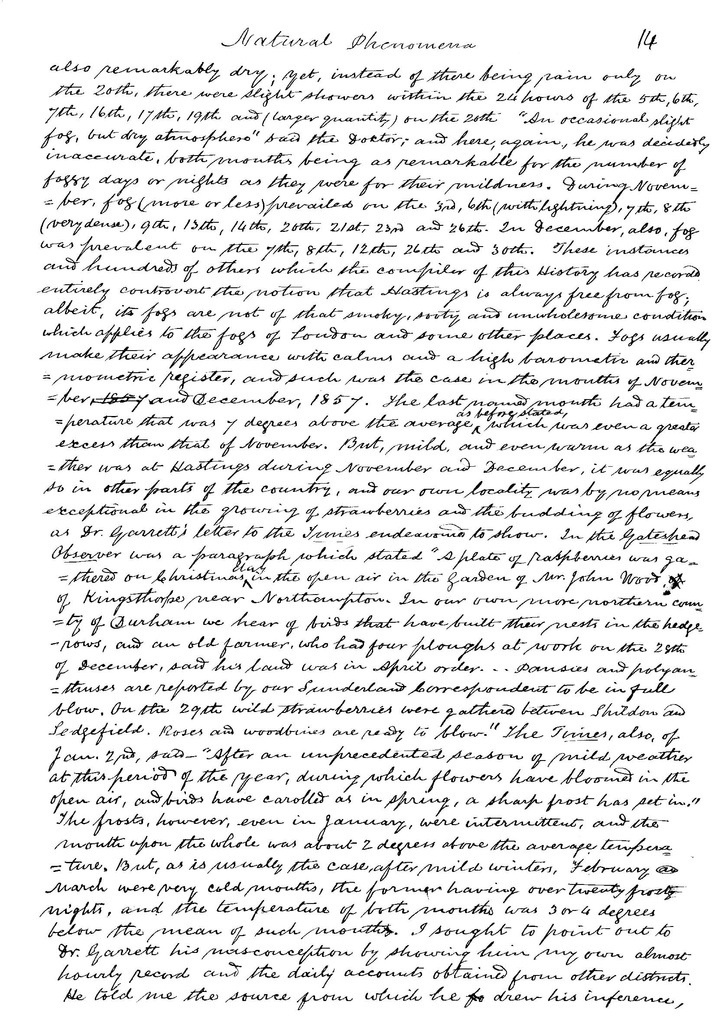 Natural Phenomena 14
also remarkably dry; yet, instead of there being rain only on
the 20th, there were slight showers within the 24 hours of the 5th, 6th,
7th, 16th, 17th, 19th and (larger quantity) on the 20th "An occasional slight
fog, but dry atmosphere" said the Doctor; and here, again, he was decidedly
inaccurate, both months being as remarkable for the number of
foggy days or nights as they were for their mildness. During Novem=
=ber, fog (more or less) prevailed on the 3rd, 6th (with lightning), 7th, 8th
(very dense), 9th, 13th, 14th, 20th, 21st, 23rd and 26th. In December, also, fog
was prevalent on the 7th, 8th, 12th, 26th and 30th. These instances
and hundreds of others which the compiler of this History has records
entirely controvert the notion that Hastings is always free from fog;
albeit, its fogs are not of that smoky, sooty and unwholesome condition
which applies to the fogs of London and some other places. Fogs usually
make their appearance with calms and a high barometric and ther
=mometric register, and such was the case in the months of Novem
=ber, 1857 and December, 1857. The last named month had a tem=
=perature that was 7 degrees above the average, as before stated, which was even a greater
excess than that of November. But, mild, and even warm as the wea
=ther was at Hastings during November and December, it was equally
so in other parts of the country, and our own locality was by no means
exceptional in the growing of strawberries and the budding of flowers,
as Dr. Garrett's letter to the Times endeavours to show. In the Gateshead
Observer was a paragraph which stated "A plate of raspberries was ga=
=thered on Christmas day in the open air in the Garden of Mr. John Wood
of Kingsthorpe near Northampton. In our own more northern coun=
=ty of Durham we hear of birds that have built their nests in the hedge-
-rows, and an old farmer, who had four ploughs at work on the 28th
of December, said his land was in April order... Pansies and polyan=
=thuses are reported by our Sunderland Correspondent to be in full
blow. On the 29th wild strawberries were gathered between Shildon and
Sedgefield. Roses and woodbines are ready to blow." The Times, also, of
Jan. 2nd, said— "After an unprecedented season of mild weather
at this period of the year, during which flowers have bloomed in the
open air, and birds have carolled as in spring, a sharp frost has set in."
The frosts, however, even in January, were intermittent, and the
month upon the whole was about 2 degrees above the average tempera
=ture. But, as is usually the case, after mild winters, February and
March were very cold months, the former having over twenty frosty
nights, and the temperature of both months was 3 or 4 degrees
below the mean of such months. I sought to point out to
Dr. Garrett his misconception by showing him my own almost
hourly record and the daily accounts obtained from other districts.
He told me the source from which he drew his inference,